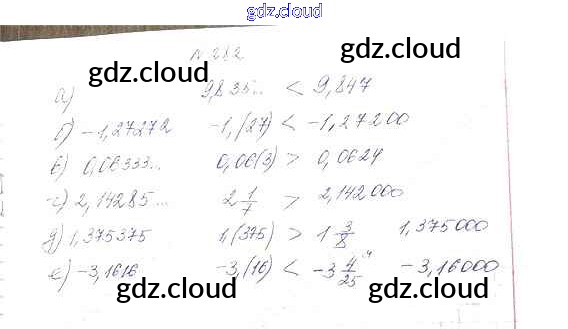 gdz.cloud
N 282
gdz.cloud gdz.cloud gdz.cloud
а) 9,835... < 9,847
б) -1,27272 -1,(27) < -1,27200
в) 0,06333... 0,06(3) > 0,0624
г) 2,14285... 2 1/7 > 2,142000
д) 1,375375 1,(375) > 1 3/8 1,375000
е) -3,1616 -3,(16) < -3 4/25 -3,16000
gdz.cloud gdz.cloud gdz.cloud